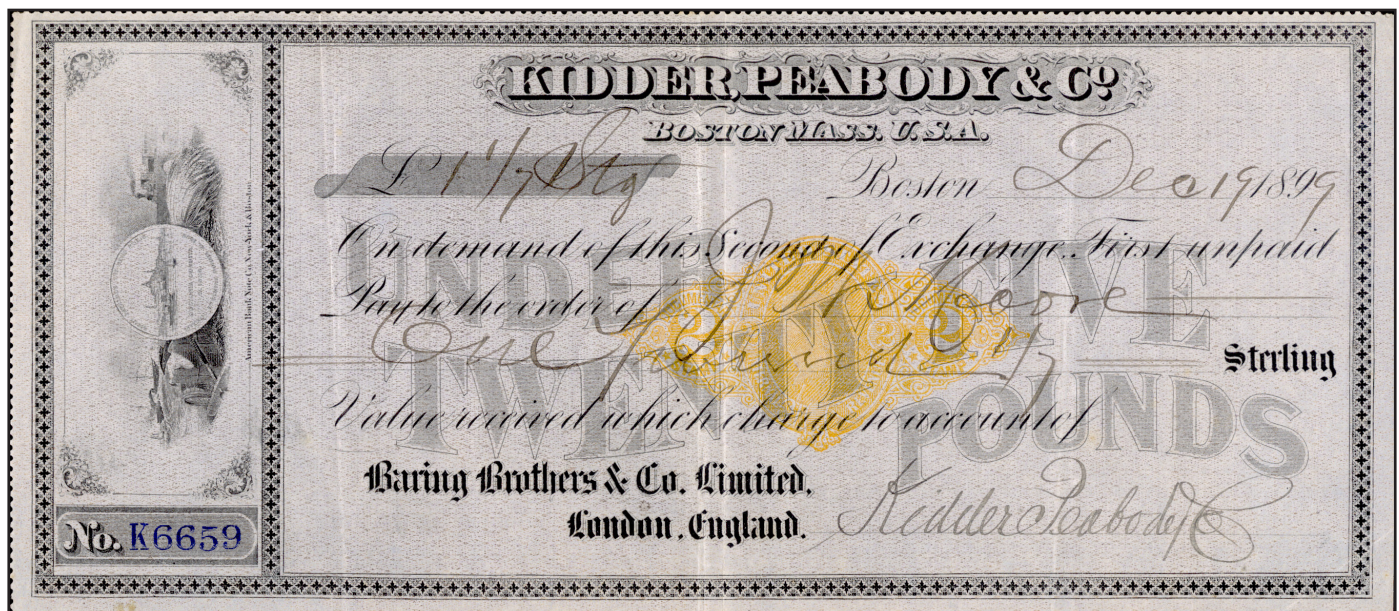 KIDDER, PEABODY & Co
BOSTON MASS. U.S.A.
£ 1 1/7 Stg
Boston Dec 19 1899
On demand of this Second of Exchange. First unpaid
Pay to the order of J. Moore
One Pound 1/7 Sterling
Value received which charge to account of
Baring Brothers & Co. Limited,
London, England.
Kidder Peabody & Co
UNDER TWENTY FIVE POUNDS
American Bank Note Co. New-York & Boston
No. K6659